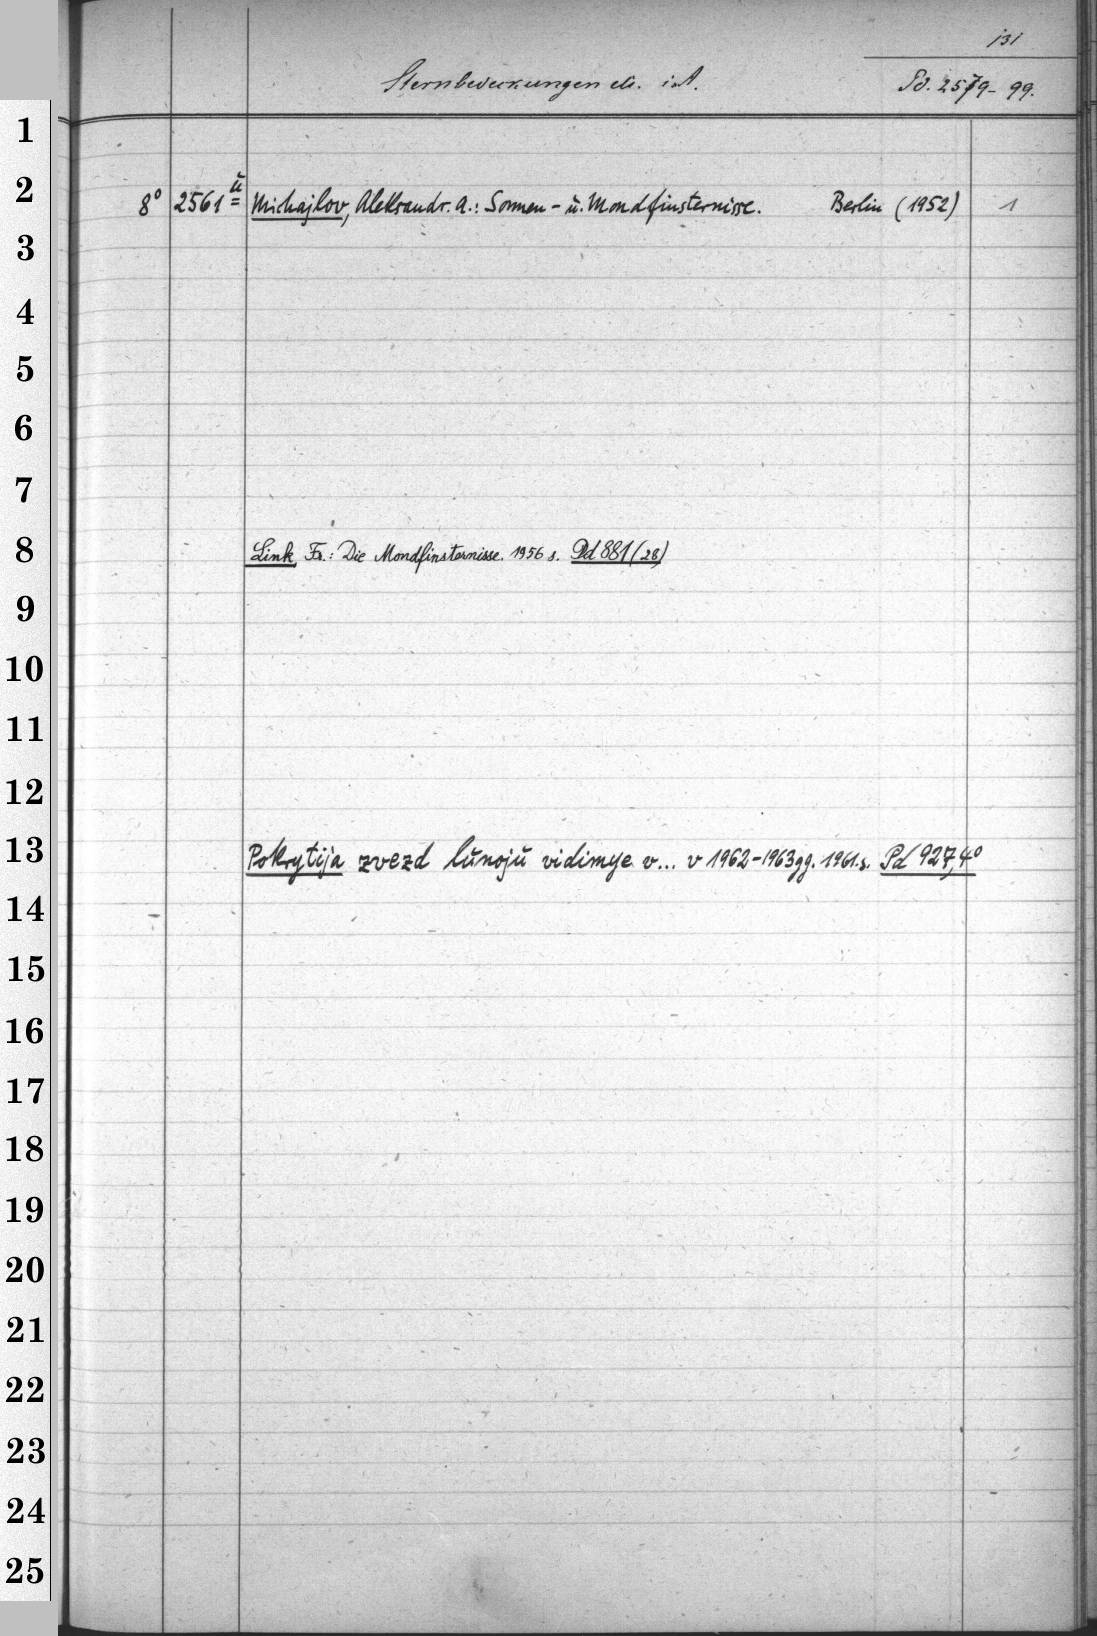 131
Sternbedeckungen etc. i. A.
Pd. 2579-99.
8° 2561 ü Michajlov, Aleksandr. A.: Sonnen- u. Mondfinsternisse. Berlin (1952) 1
Link, Fr.: Die Mondfinsternisse. 1956 s. Pd 881 (28)
Pokrytija zvezd lŭnojŭ vidimye v... v 1962-1963gg. 1961. s. Pd 927, 4°
1
2
3
4
5
6
7
8
9
10
11
12
13
14
15
16
17
18
19
20
21
22
23
24
25